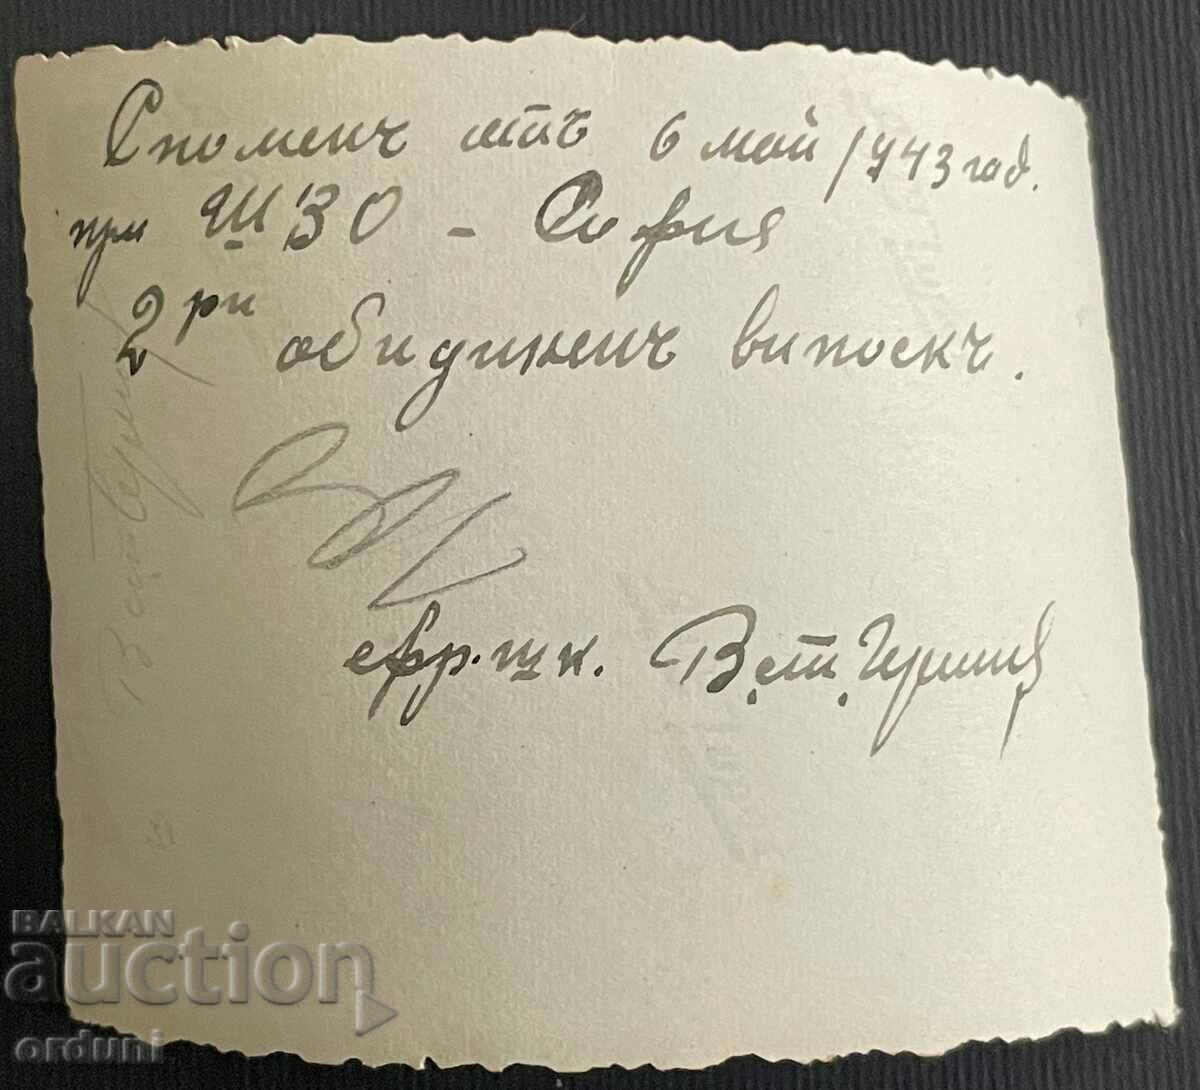 Споменъ отъ 6 май 1943 год.
при ШЗО - София
2 ри обидиненъ випоскъ.
ефр. шк. В. ст. Гершия
BALKAN
auction
orduni